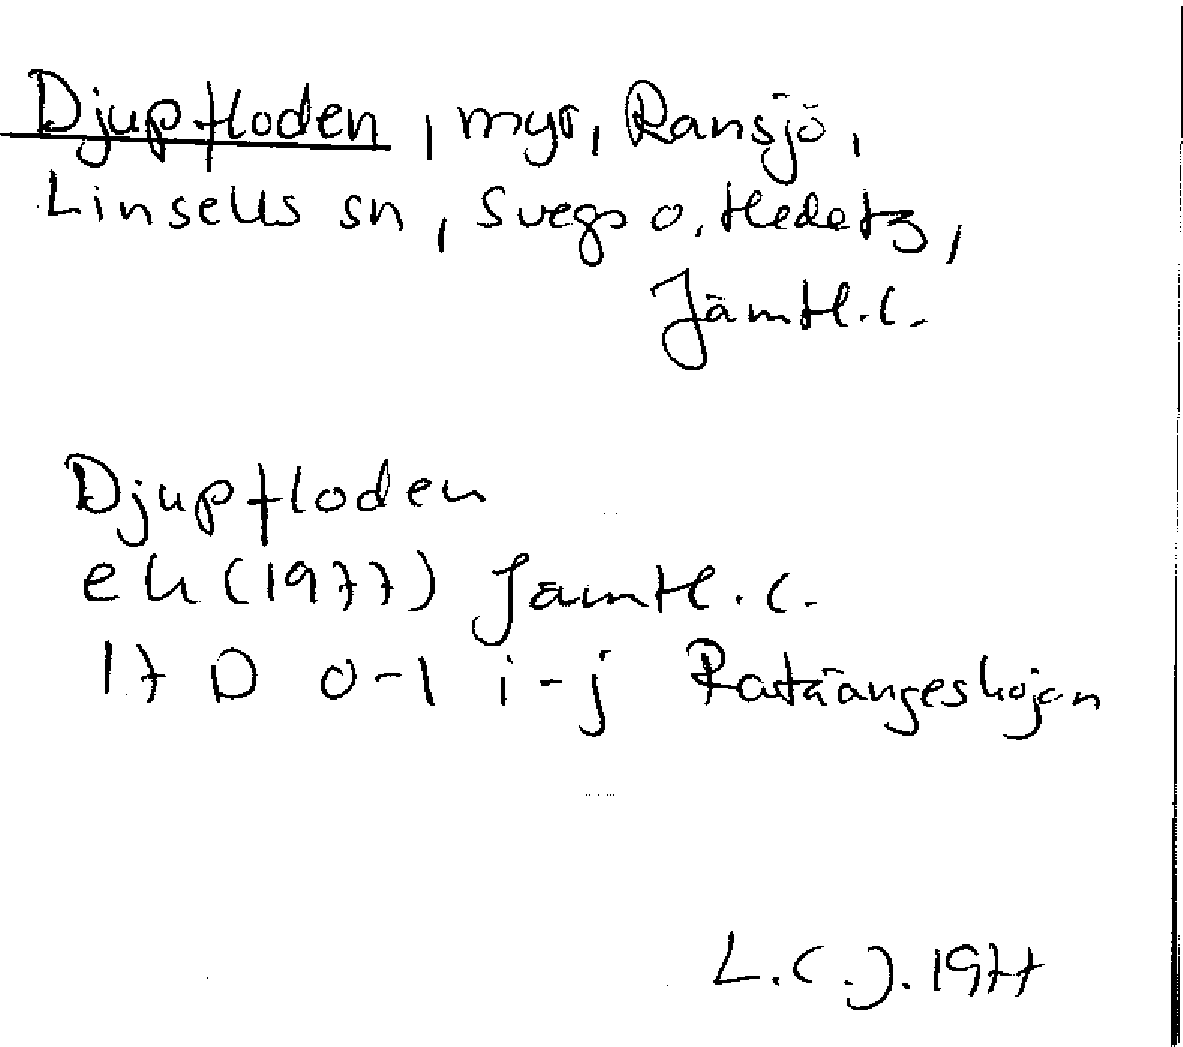 Djupfloden, myr, Ransjö,
Linsells sn, Svegs o. Hedetg,
Jämtl.l.
Djupfloden
ek (1977) Jämtl. l.
17 D 0-1 i-j
L.C.J. 1977